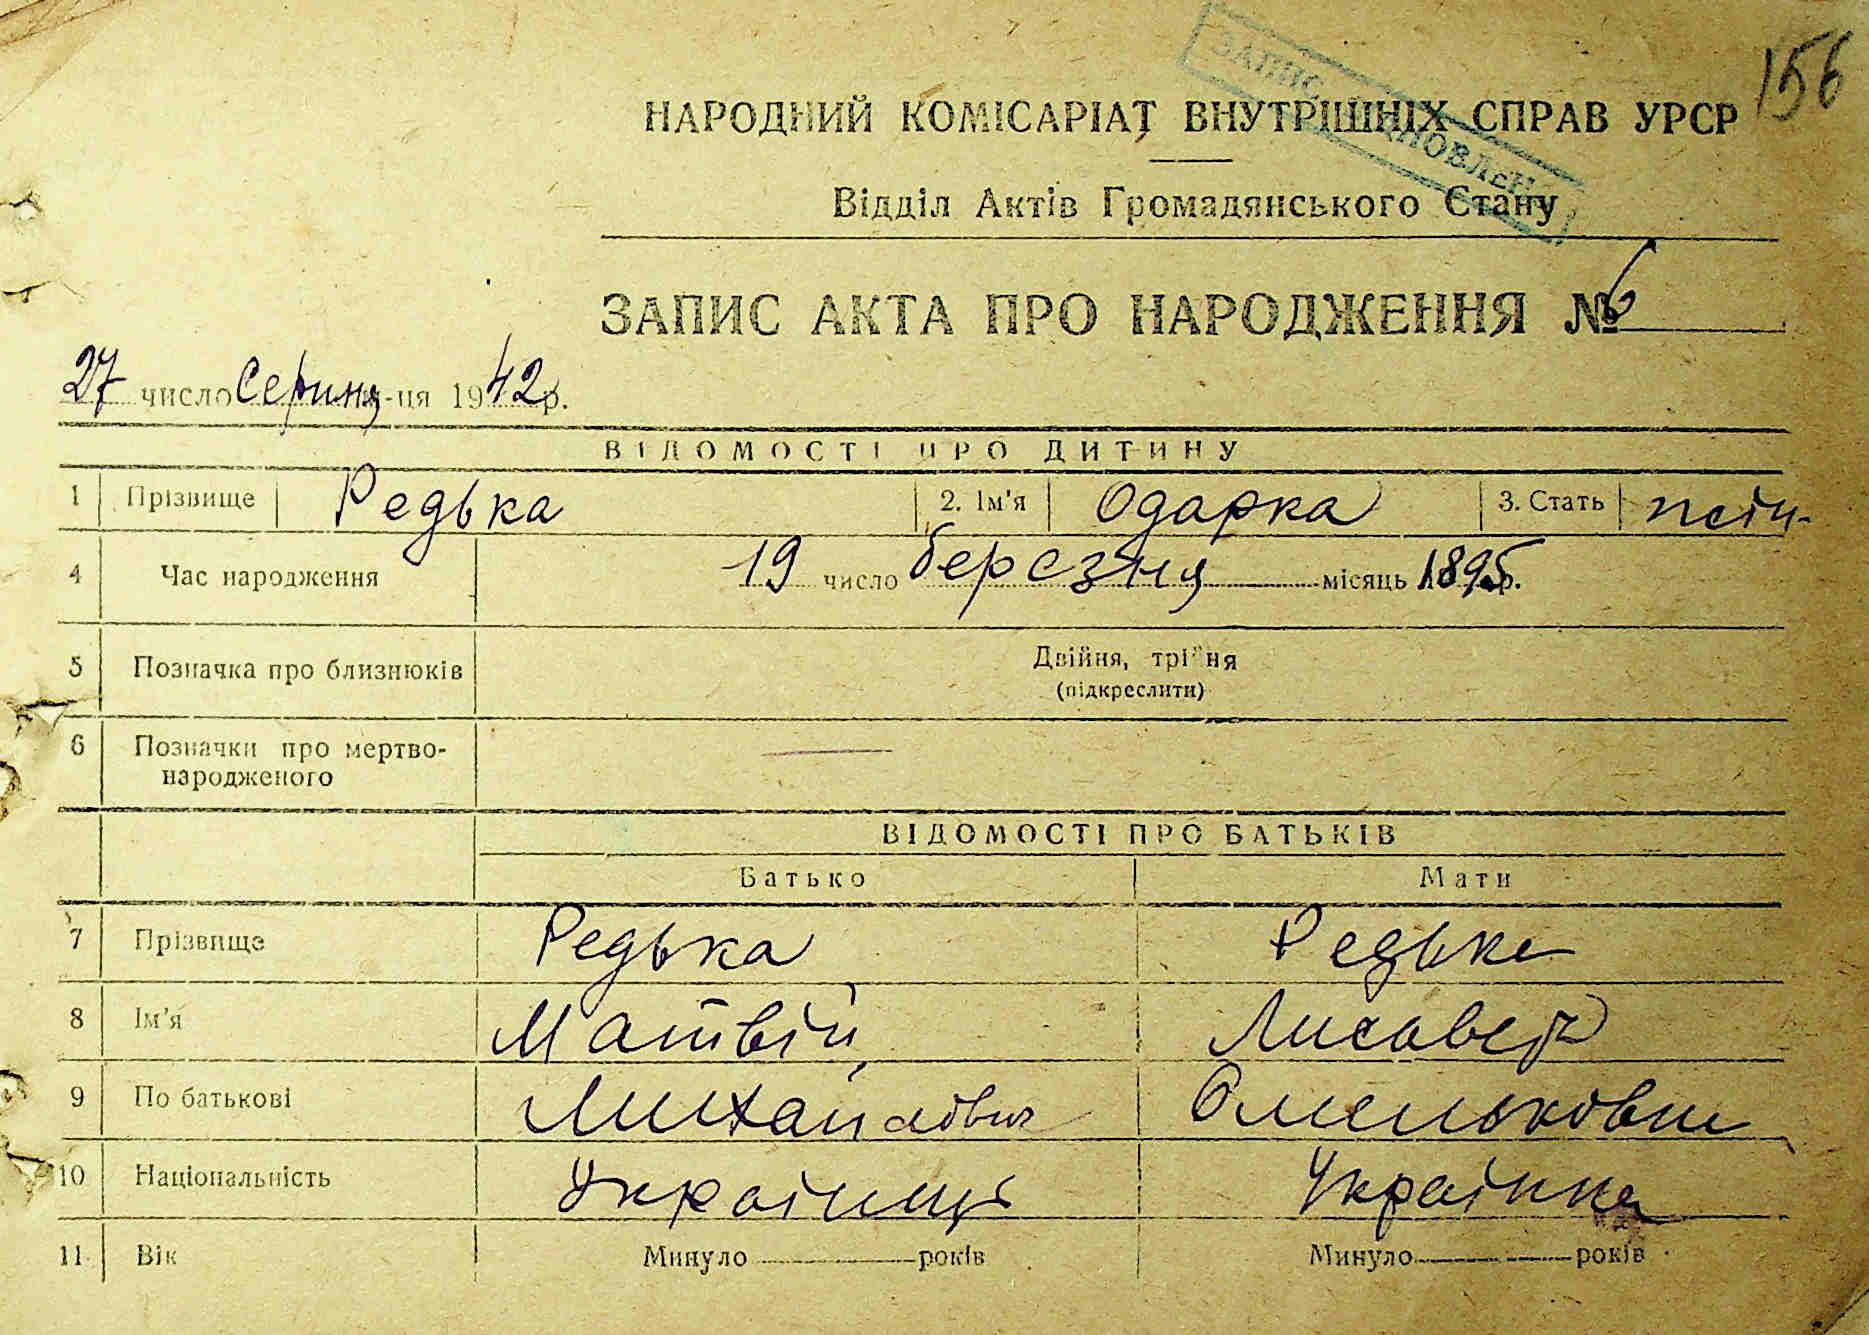 156
ЗАПИС ВІДНОВЛЕНО
НАРОДНИЙ КОМІСАРІАТ ВНУТРІШНІХ СПРАВ УРСР
Відділ Актів Громадянського Стану
ЗАПИС АКТА ПРО НАРОДЖЕННЯ № 6
27 число Серпня м-ця 1942 р.
ВІДОМОСТІ ПРО ДИТИНУ
1 Прізвище Редька 2. Ім'я Одарка 3. Стать
4 Час народження 19 число березня місяць 1895 р.
5 Позначка про близнюків Двійня, трійня
(підкреслити)
6 Позначки про мертво-
народженого
ВІДОМОСТІ ПРО БАТЬКІВ
Батько Мати
7 Прізвище Редька Редька
8 Ім'я Матвій Лисавета
9 По батькові Михайлович
10 Національність Українць Українка
11 Вік Минуло років Минуло років